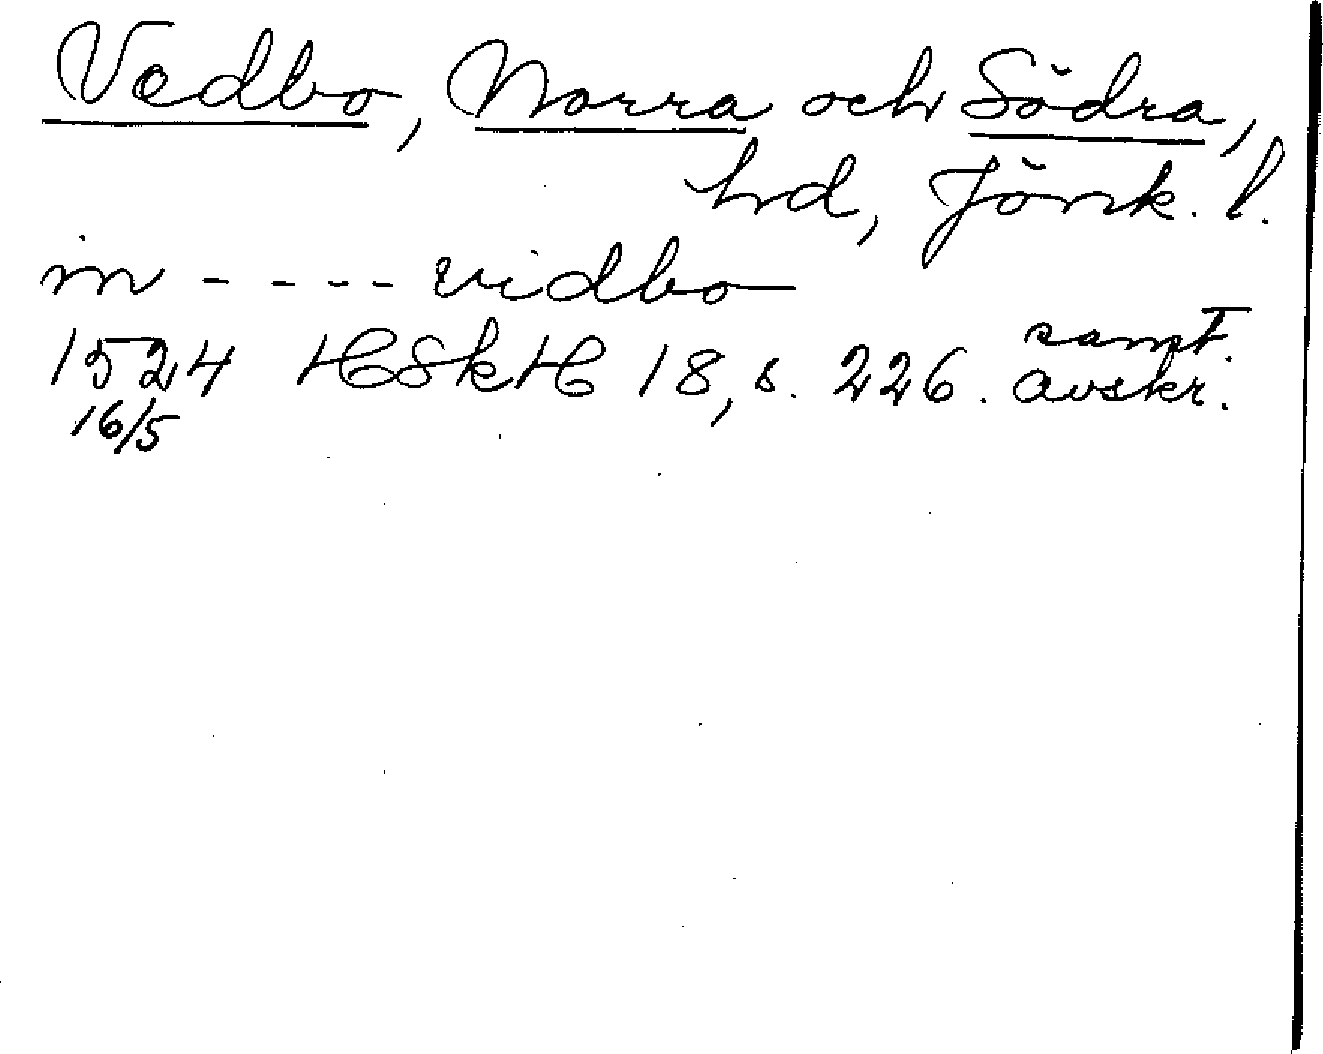 Vedbo, Norra och Södra,
hd, Jönk. l.
in - - - - vidbo
1524 HSkH 18, s. 226. samt. avskr.
16/5